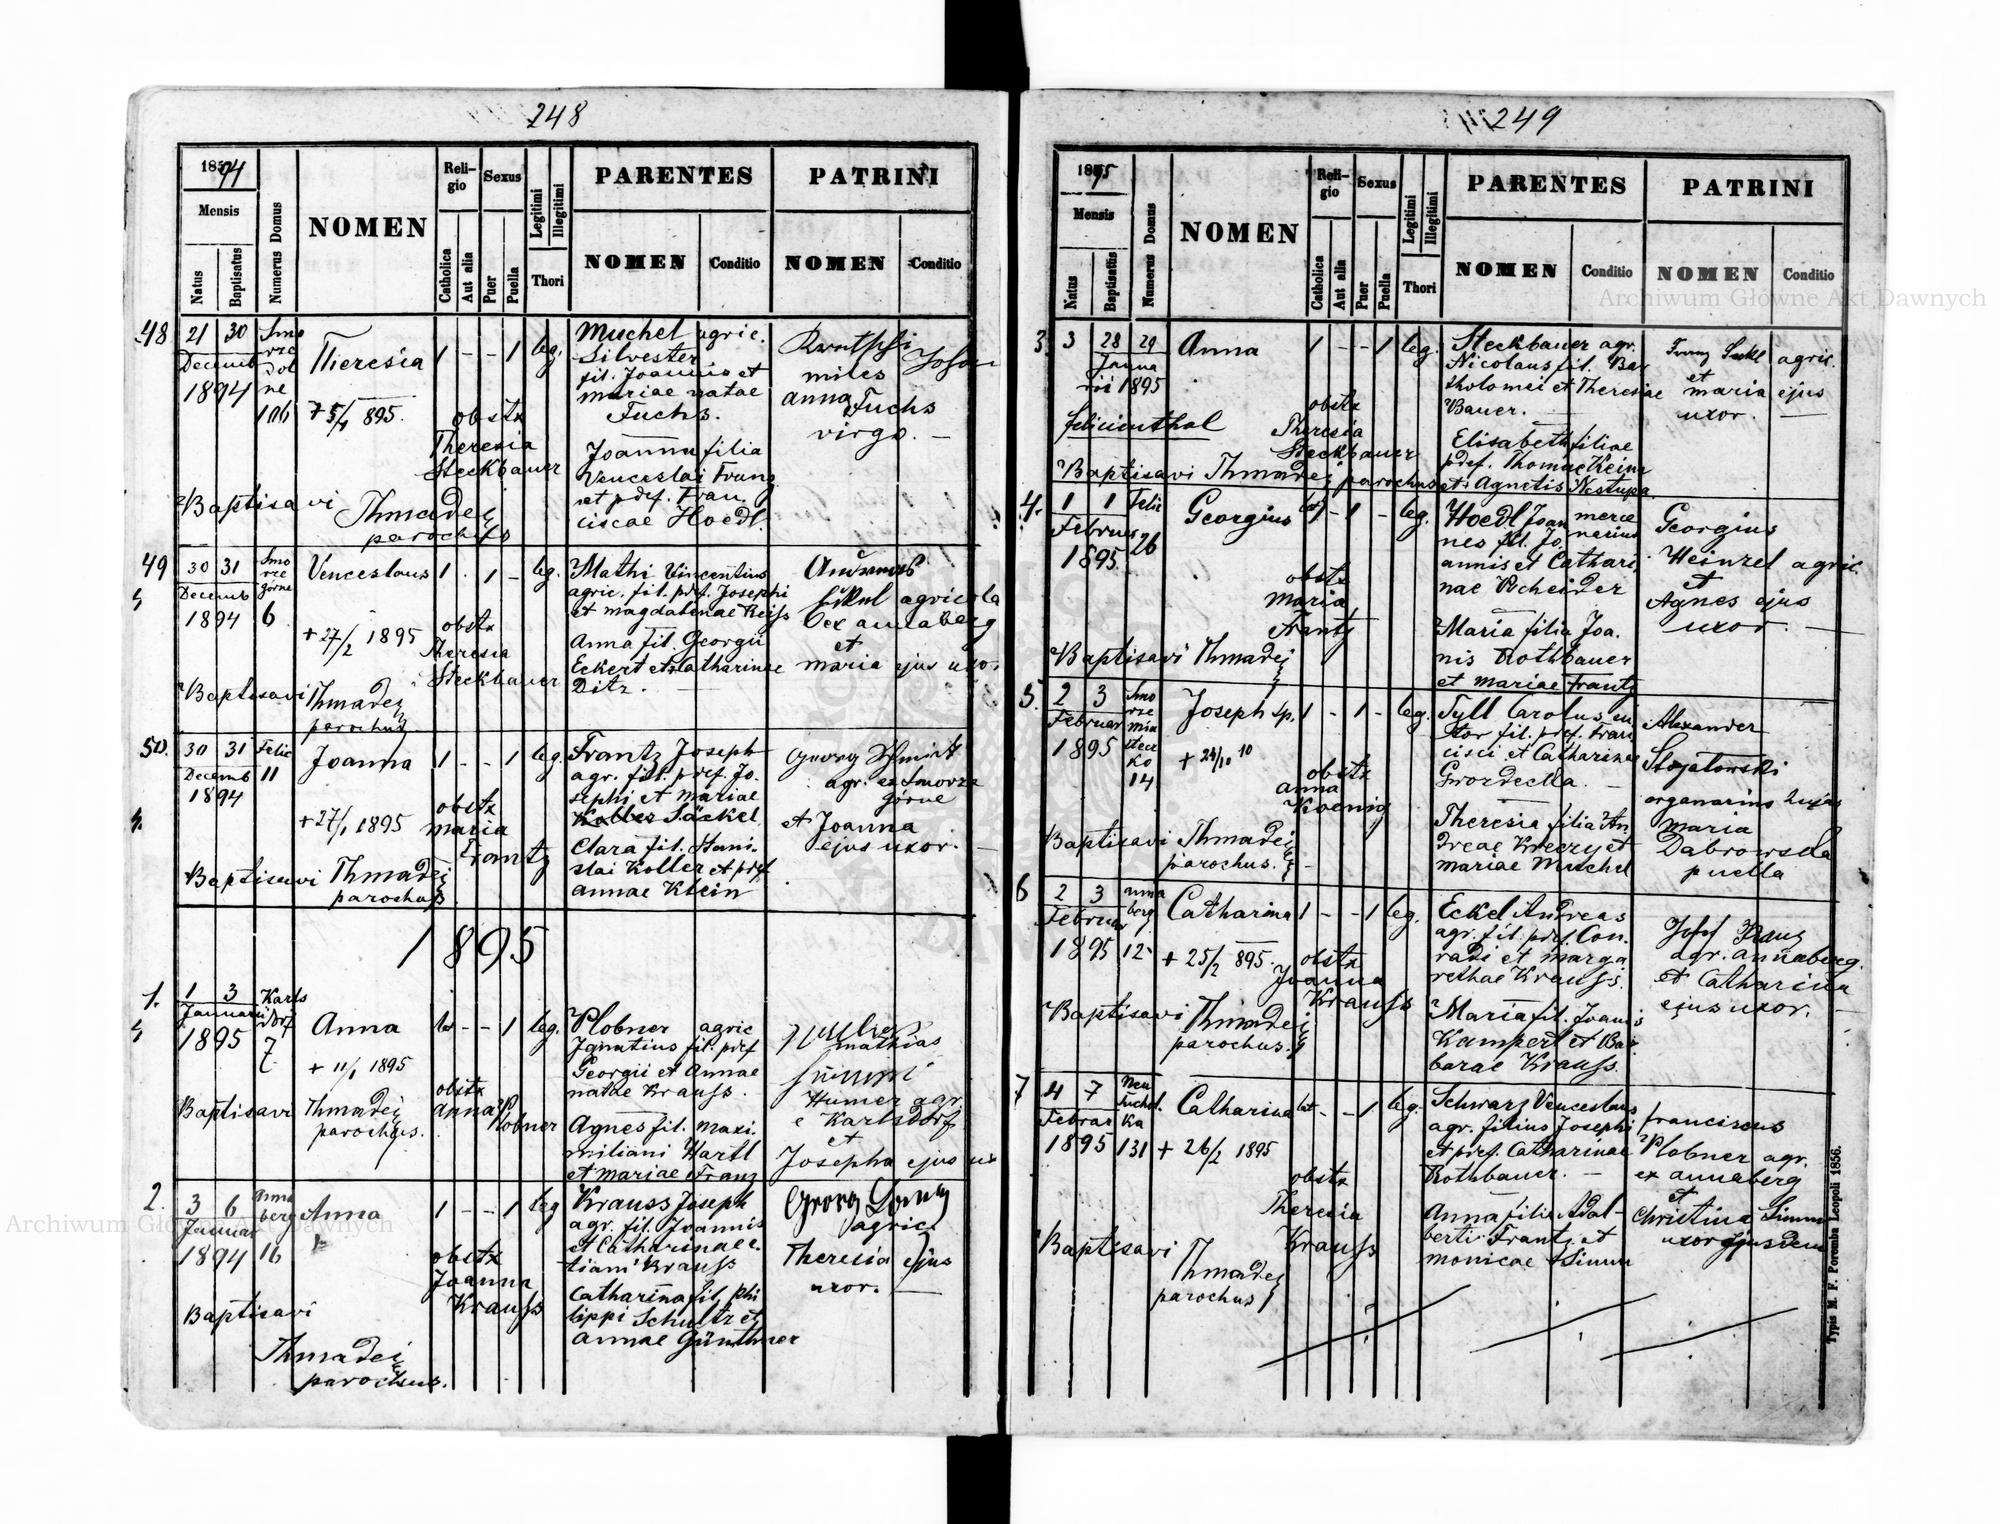 248
1894
Mensis
Natus
Baptisatus
Numerus Domus
NOMEN
Religio
Catholica
Aut alia
Sexus
Puer
Puella
Legitimi
Illegitimi
Thori
PARENTES
NOMEN
Conditio
PATRINI
NOMEN
Conditio
48
21 30 Smo
rze
Decemb Dol
ne
1894
106
Theresia
+ 5/1 895.
1 - - 1 leg.
obstx
Theresia
Steckbauer
Muchel agric.
Silvester
fil. Joannis et
mariae natae
Fuchs.
Joanna filia
Venceslai Franz
et pdef. Fran.
ciscae Hoedl.
miles
anna Fuchs
virgo. -
Baptisavi Thmadej
parochus
49
30 31 Smo
rze
Decemb Górne
1894 6
Venceslaus
+ 27/2 1895
1 . 1 - leg.
obstx
Theresia
Steckbauer
Mathi Vincentius
agric. fil. pdf. Josephi
et magdalenae Reiss
Anna fil. Georgii
Eckert et Catharinae
Ditz. -
Andreas
agricola
ex annaberg
et
maria ejus uxor
Baptisavi Thmadej
parochus
50.
30 31 Felic
Decemb 11
1894
Joanna
+ 27/1 1895
1 - - 1 leg.
obstx
maria
Frantz
Frantz Joseph
agr. fil. pdef. Jo.
sephi et mariae
Säckel
Clara fil. Stani-
slai Koller et pdef.
annae Klein
Georg Schmidt
agr. ex Smorze
górne
et Joanna
ejus uxor. -
Baptisavi Thmadej
parochus
1895
1.
1 3 Karls
dorf
Januarii
1895 7
Anna
+ 11/1 1895
lat - - 1 leg.
obstx
anna Plobner
Plobner agric
Ignatius fil. pdef
Georgii et Annae
natae Krauss.
Agnes fil. maxi.
miliani Hartl
et mariae Franz
mathias
Humer agr.
e Karlsdorf
et
Josepha ejus ux
Baptisavi Thmadej
parochus.
2.
3 6 Anna
berg
Januar
1894 16
Anna
1 - - 1 leg
obstx
Joanna
Krauss
Krauss Joseph
agr. fil. Joannis
et Catharinae
Krauss
Catharina fil. Phi
lippi Schultz et
annae Günthner
Georg
agric.
Theresia ejus
uxor. -
Baptisavi
Thmadej
parochus.
249
1895
Mensis
Natus
Baptisatus
Numerus Domus
NOMEN
Religio
Catholica
Aut alia
Sexus
Puer
Puella
Legitimi
Illegitimi
Thori
PARENTES
NOMEN
Conditio
PATRINI
NOMEN
Conditio
3.
3 28 29
Janua
rii 1895
felicienthal
Anna
1 - - 1 leg.
obstx
Theresia
Steckbauer
Steckbauer agr.
Nicolaus fil. Bar
tholomei et Theresiae
Bauer. -
Elisabeth filiae
pdef. Thomae Keim
et Agnetis Nestupa
Franz agric.
et
maria ejus
uxor. -
Baptisavi Thmadej parochus
4.
1 1 Felic
Februar 26
1895
Georgius
lat - 1 - leg.
obstx
maria
Frantz
Hoedl Joan merce
nes fil. Jo. narius
annis et Cathari
nae Scheider
Maria filia Joa.
nis Rothbauer
et mariae Frantz
Georgius
Heinzel agric.
et
Agnes ejus
uxor. -
Baptisavi Thmadej
5.
2 3 Smo
rze
Februar mia
stecz
1895 ko
14
Joseph sp.
+ 24/10 10
1 - 1 - leg.
obstx
anna
Koenig
Tyll Carolus
fil. pdef. Fran
cisci et Catharinae
Grordecka. -
Theresia filia An
dreae Kreczy et
mariae Muchel
Alexander
Stojatowski
organarius hujas
Maria
Dabrowska
puella
Baptisavi Thmadej
parochus. -
6
2 3 anna
berg
Februar
1895 12
Catharina
+ 25/2 895.
1 - - 1 leg.
obstx
Joanna
Krauss
Eckel Andreas
agr. fil. pdef. Con.
radi et marga
rethae Krauss.
Maria fil. Joannis
Kampert et Bar
barae Krauss.
Josef Franz
agr. annaberg.
et Catharina
ejus uxor. -
Baptisavi Thmadej
parochus.
7
4 7 Neu
Tuchol.
Februar ka
1895 131
Catharina
+ 26/2 1895
lat - - 1 leg.
obstx
Theresia
Krauss
Schwarz Venceslaus
agr. filius Josephi
et pdef. Catharinae
Rothbauer. -
Anna filia Adal-
berti Frantz et
monicae Simm
franciscus
Plobner agr.
ex annaberg
et
Christina Simm
uxor ejusdem
Baptisavi
Thmadej
parochus
Typis M. F. Poremba Leopoli 1856.
Archiwum Główne Akt Dawnych
Archiwum Główne Akt Dawnych